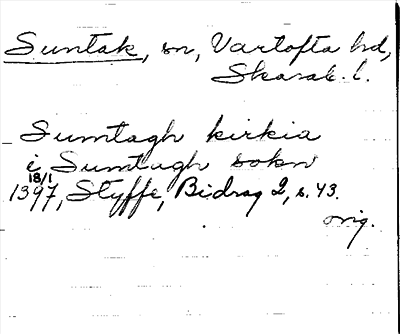 Suntak, sn, Vartofta hd,
Skarab. l.
Sumtagh kirkia
i Sumtagh sokn
18/1
1397, Styffe, Bidrag 2, s. 43.
orig.